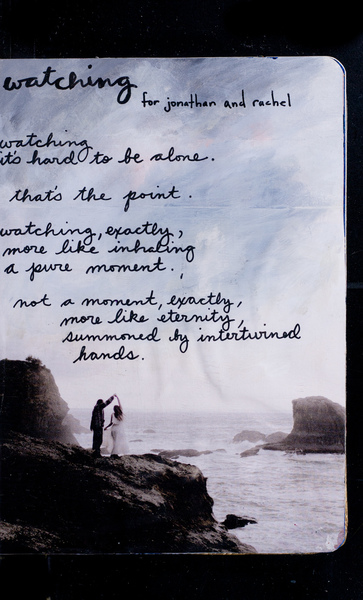 watching
for jonathan and rachel
watching
it's hard to be alone.
that's the point.
watching, exactly,
more like inhaling
a pure moment.
not a moment, exactly,
more like eternity,
summoned by intertwined
hands.